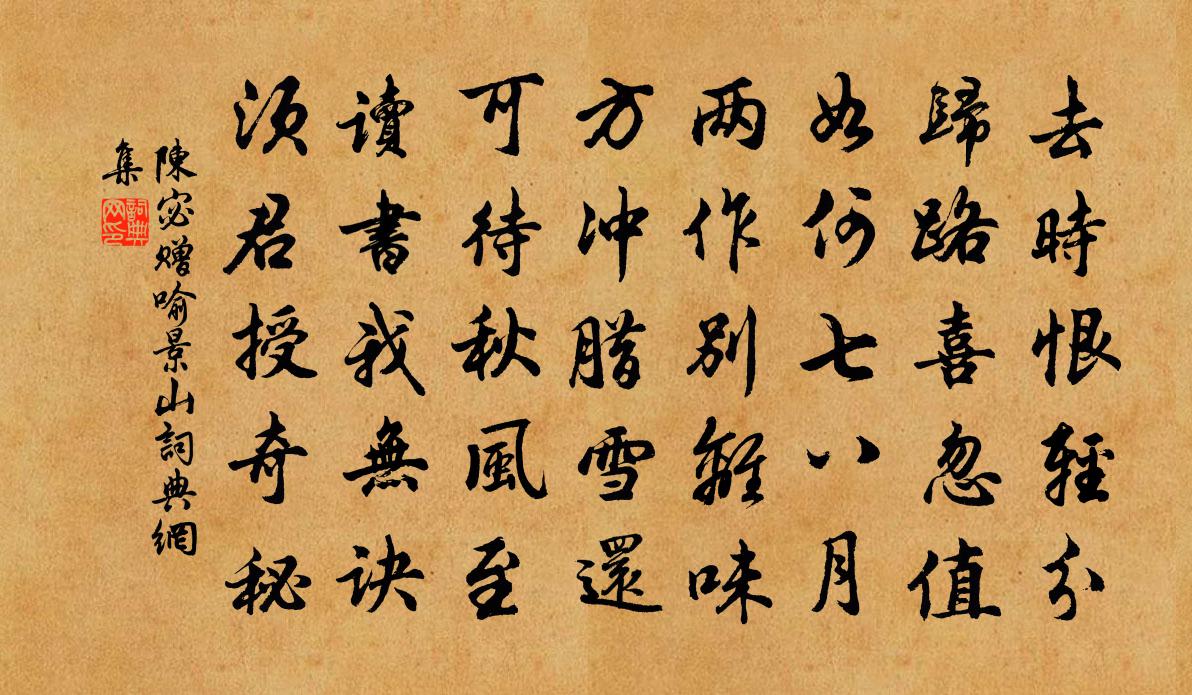 去時恨輕分
歸路喜忽值
如何七八月
两作別離味
方冲腊雪還
可待秋風至
讀書我無訣
須君授奇秘
陳宓贈喻景山詞典網
集
詞典
网印